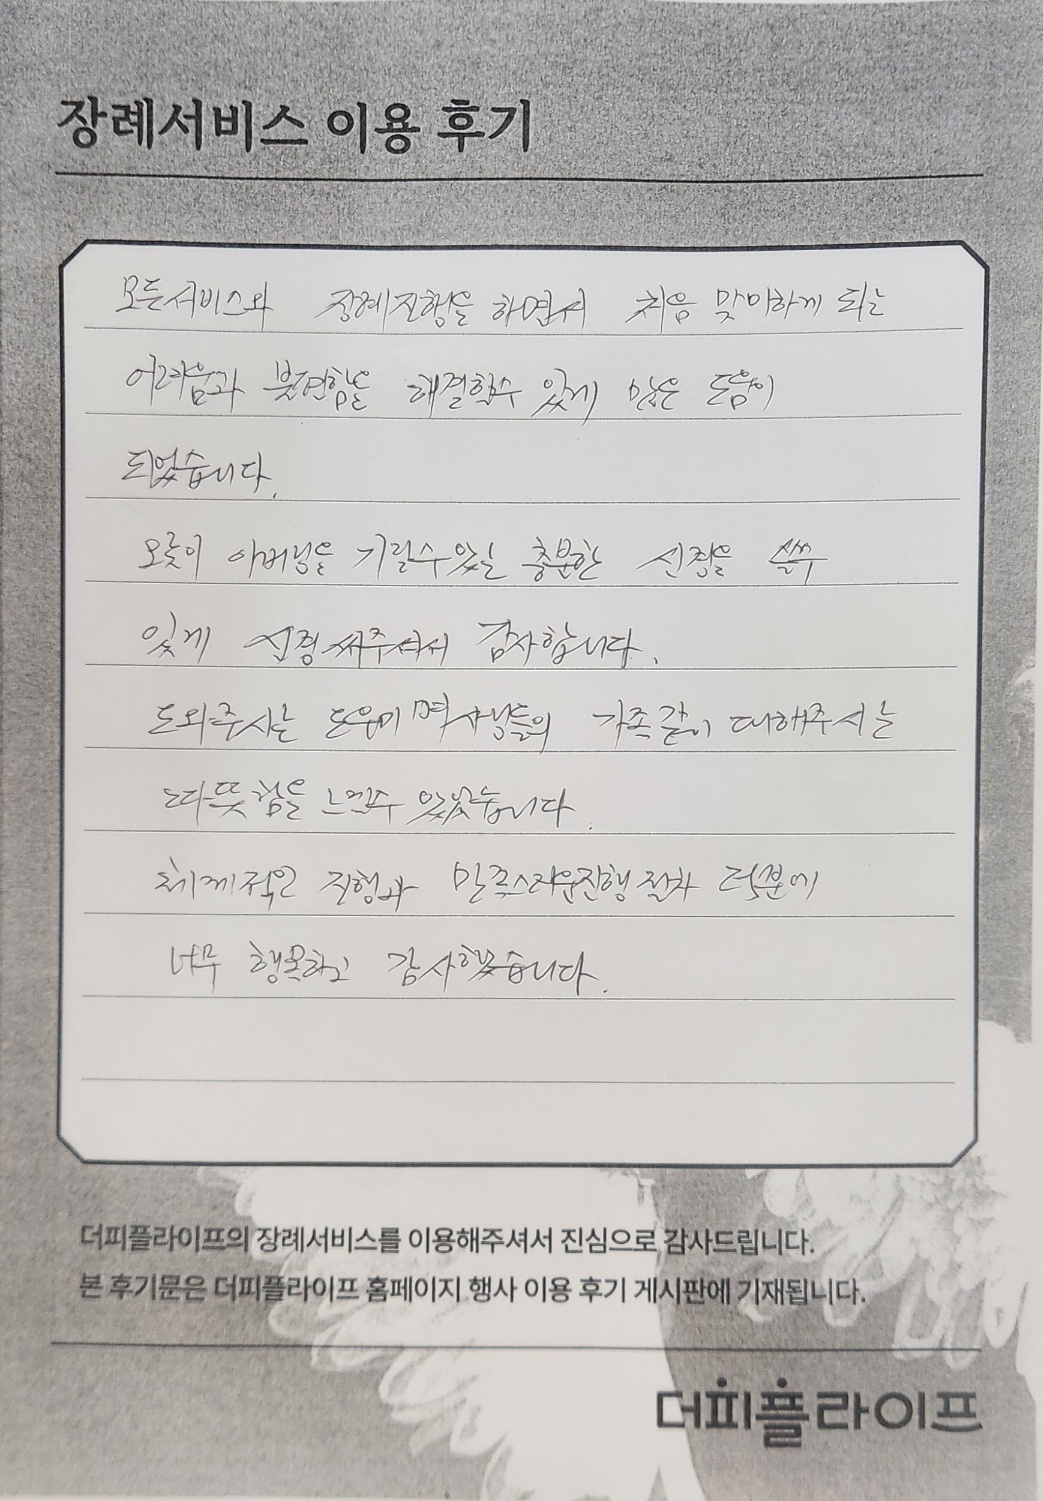 장례서비스 이용 후기
모든서비스와 장례진행을 하면서 처음 맞이하게 되는
어려움과 불편함을 해결할수 있게 많은 도움이
되었습니다.
오롯이 아버님을 기릴수있는 충분한 신경을 쓸수
있게 신경써주셔서 감사합니다.
도와주시는 도우미 여사님들의 가족같이 대해주시는
따뜻함을 느낄수 있었습니다.
체계적인 진행과 만족스러운진행절차 덕분에
너무 행복하고 감사했습니다.
더피플라이프의 장례서비스를 이용해주셔서 진심으로 감사드립니다.
본 후기문은 더피플라이프 홈페이지 행사 이용 후기 게시판에 기재됩니다.
더피플라이프